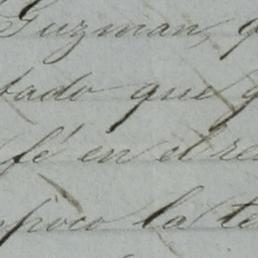 Guzman, q
tado que q
fé en el re
mpoco la te